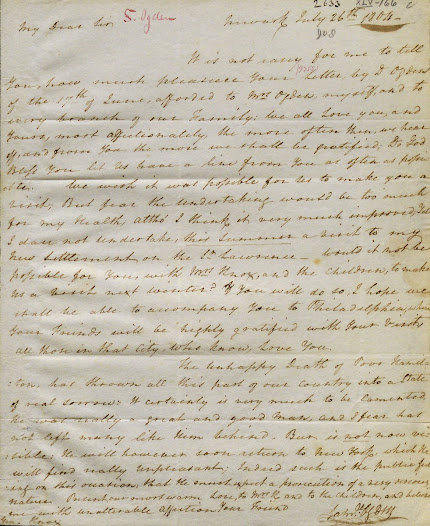 2633 XLV-166 C
My Dear Sir, S. Ogden Newark July 26th 1804
It is not easy for me to tell
You, how much pleasure Your Letter, by D Ogden
of the 17th of June, afforded to Mrs Ogden, myself, and to
every branch of our Family; We all Love you, and
Yours, most affectionately, the more often then, we hear
of, and from You the more we shall be gratified; Do God
bless You let us have a line from You as often as possi
ble. We wish it was possible for us to make you a
visit, But fear the undertaking would be too much
for my Health, altho I think it very much improved, Yet
I dare not undertake, this Summer a visit to my
New Settlement on the St. Lawrence - would it not be
possible for You, with Mrs Knox, and the Children, to make
us a visit next winter? If You will do so, I hope we
shall be able to accompany You to Philadelphia, where
Your Friends will be highly gratified with Your Visit
all those in that City, who know, Love You.
The unhappy Death of Poor Hamil-
-ton, has thrown all this part of our country into a State
of real sorrow: It certainly is very much to be lamented
He was really a great and good Man, and I fear has
not left many like Him behind. Burr is not now vi
sible. He will however soon return to New York, which he
will find really unpleasant. Indeed such is the public feel
ing on this occasion, that He must expect a prosecution of a very serious
nature. Present our most warm Love, to Mrs K. and to the Children, and believe
me with unalterable affection Your Friend
Knox